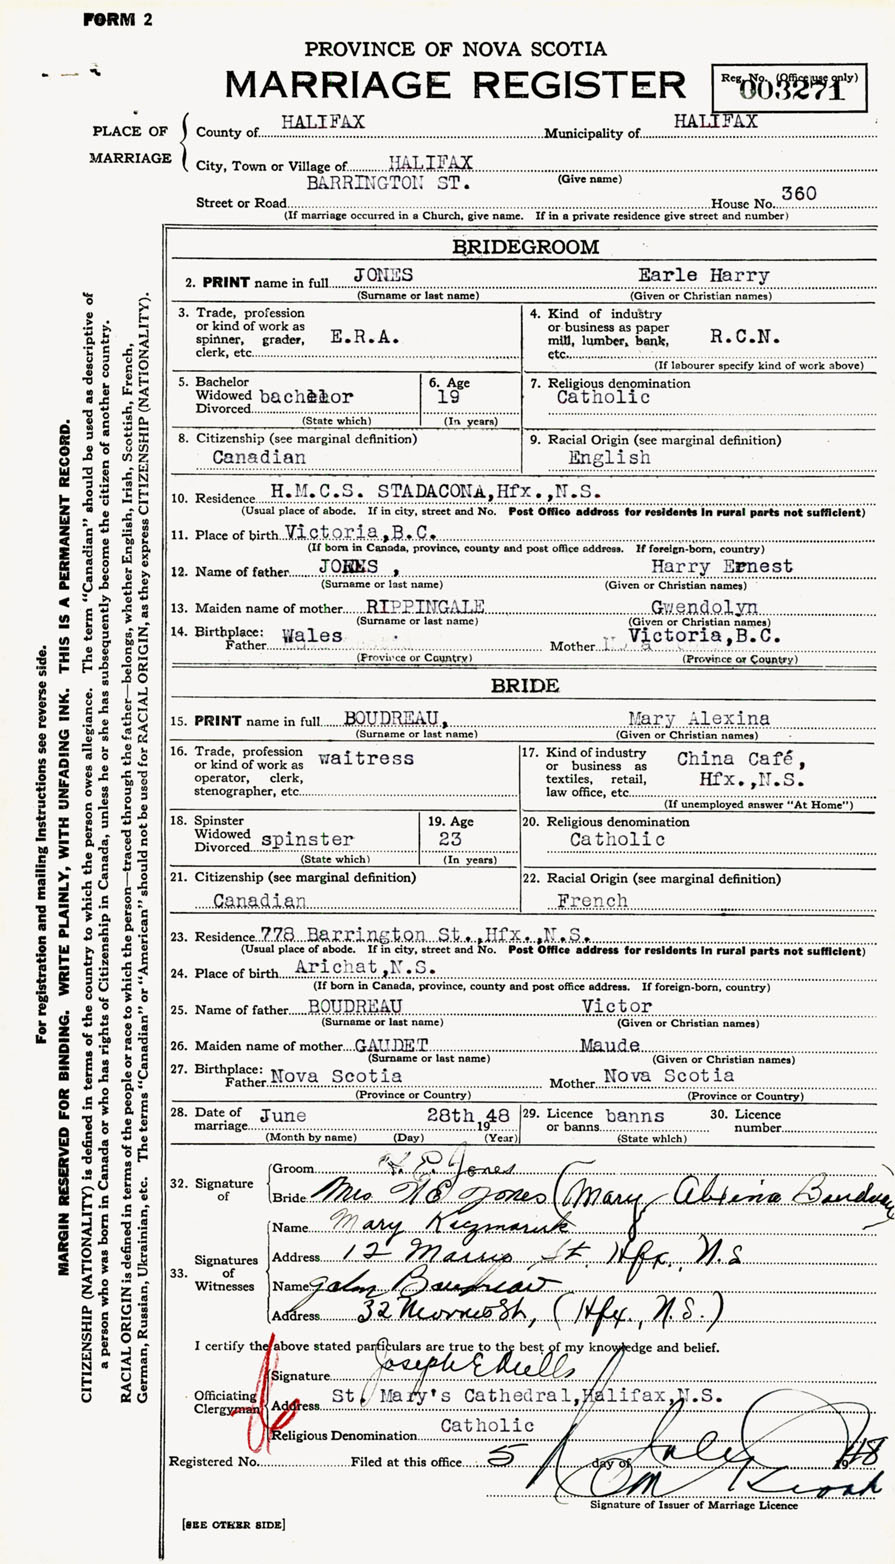 FORM 2
PROVINCE OF NOVA SCOTIA
MARRIAGE REGISTER
Reg. No. (Office use only)
003271
PLACE OF MARRIAGE
County of HALIFAX Municipality of HALIFAX
City, Town or Village of HALIFAX
(Give name)
BARRINGTON ST.
Street or Road House No. 360
(If marriage occurred in a Church, give name. If in a private residence give street and number)
BRIDEGROOM
2. PRINT name in full JONES Earle Harry
(Surname or last name) (Given or Christian names)
3. Trade, profession or kind of work as spinner, grader, clerk, etc. E.R.A.
4. Kind of industry or business as paper mill, lumber, bank, etc. R.C.N.
(If labourer specify kind of work above)
5. Bachelor Widowed Divorced bachelor
(State which)
6. Age 19
(In years)
7. Religious denomination
Catholic
8. Citizenship (see marginal definition)
Canadian
9. Racial Origin (see marginal definition)
English
10. Residence H.M.C.S. STADACONA, Hfx., N.S.
(Usual place of abode. If in city, street and No. Post Office address for residents in rural parts not sufficient)
11. Place of birth Victoria, B.C.
(If born in Canada, province, county and post office address. If foreign-born, country)
12. Name of father JONES , Harry Ernest
(Surname or last name) (Given or Christian names)
13. Maiden name of mother RIPPINGALE Gwendolyn
(Surname or last name) (Given or Christian names)
14. Birthplace: Father Wales Mother Victoria, B.C.
(Province or Country) (Province or Country)
BRIDE
15. PRINT name in full BOUDREAU, Mary Alexina
(Surname or last name) (Given or Christian names)
16. Trade, profession or kind of work as operator, clerk, stenographer, etc. waitress
17. Kind of industry or business as textiles, retail, law office, etc. China Café, Hfx., N.S.
(If unemployed answer "At Home")
18. Spinster Widowed Divorced spinster
(State which)
19. Age 23
(In years)
20. Religious denomination
Catholic
21. Citizenship (see marginal definition)
Canadian
22. Racial Origin (see marginal definition)
French
23. Residence 778 Barrington St., Hfx., N.S.
(Usual place of abode. If in city, street and No. Post Office address for residents in rural parts not sufficient)
24. Place of birth Arichat, N.S.
(If born in Canada, province, county and post office address. If foreign-born, country)
25. Name of father BOUDREAU Victor
(Surname or last name) (Given or Christian names)
26. Maiden name of mother GAUDET Maude
(Surname or last name) (Given or Christian names)
27. Birthplace: Father Nova Scotia Mother Nova Scotia
(Province or Country) (Province or Country)
28. Date of marriage June 28th 1948
(Month by name) (Day) (Year)
29. Licence or banns banns
(State which)
30. Licence number
32. Signature of
Groom H. E. Jones
Bride Mrs H E Jones (Mary Alexina Boudreau)
33. Signatures of Witnesses
Name Mary
Address 12 St. Hfx, N.S
Name John Boudreau
Address 32 Morris St, (Hfx, N.S.)
I certify the above stated particulars are true to the best of my knowledge and belief.
Officiating Clergyman
Signature Joseph E
Address St. Mary's Cathedral, Halifax, N.S.
Religious Denomination Catholic
Registered No. Filed at this office 5 day of July 1948
Signature of Issuer of Marriage Licence
[SEE OTHER SIDE]
For registration and mailing instructions see reverse side.
MARGIN RESERVED FOR BINDING. WRITE PLAINLY, WITH UNFADING INK. THIS IS A PERMANENT RECORD.
CITIZENSHIP (NATIONALITY) is defined in terms of the country to which the person owes allegiance. The term "Canadian" should be used as descriptive of
a person who was born in Canada or who has rights of Citizenship in Canada, unless he or she has subsequently become the citizen of another country.
RACIAL ORIGIN is defined in terms of the people or race to which the person—traced through the father—belongs, whether English, Irish, Scottish, French,
German, Russian, Ukrainian, etc. The terms "Canadian" or "American" should not be used for RACIAL ORIGIN, as they express CITIZENSHIP (NATIONALITY).